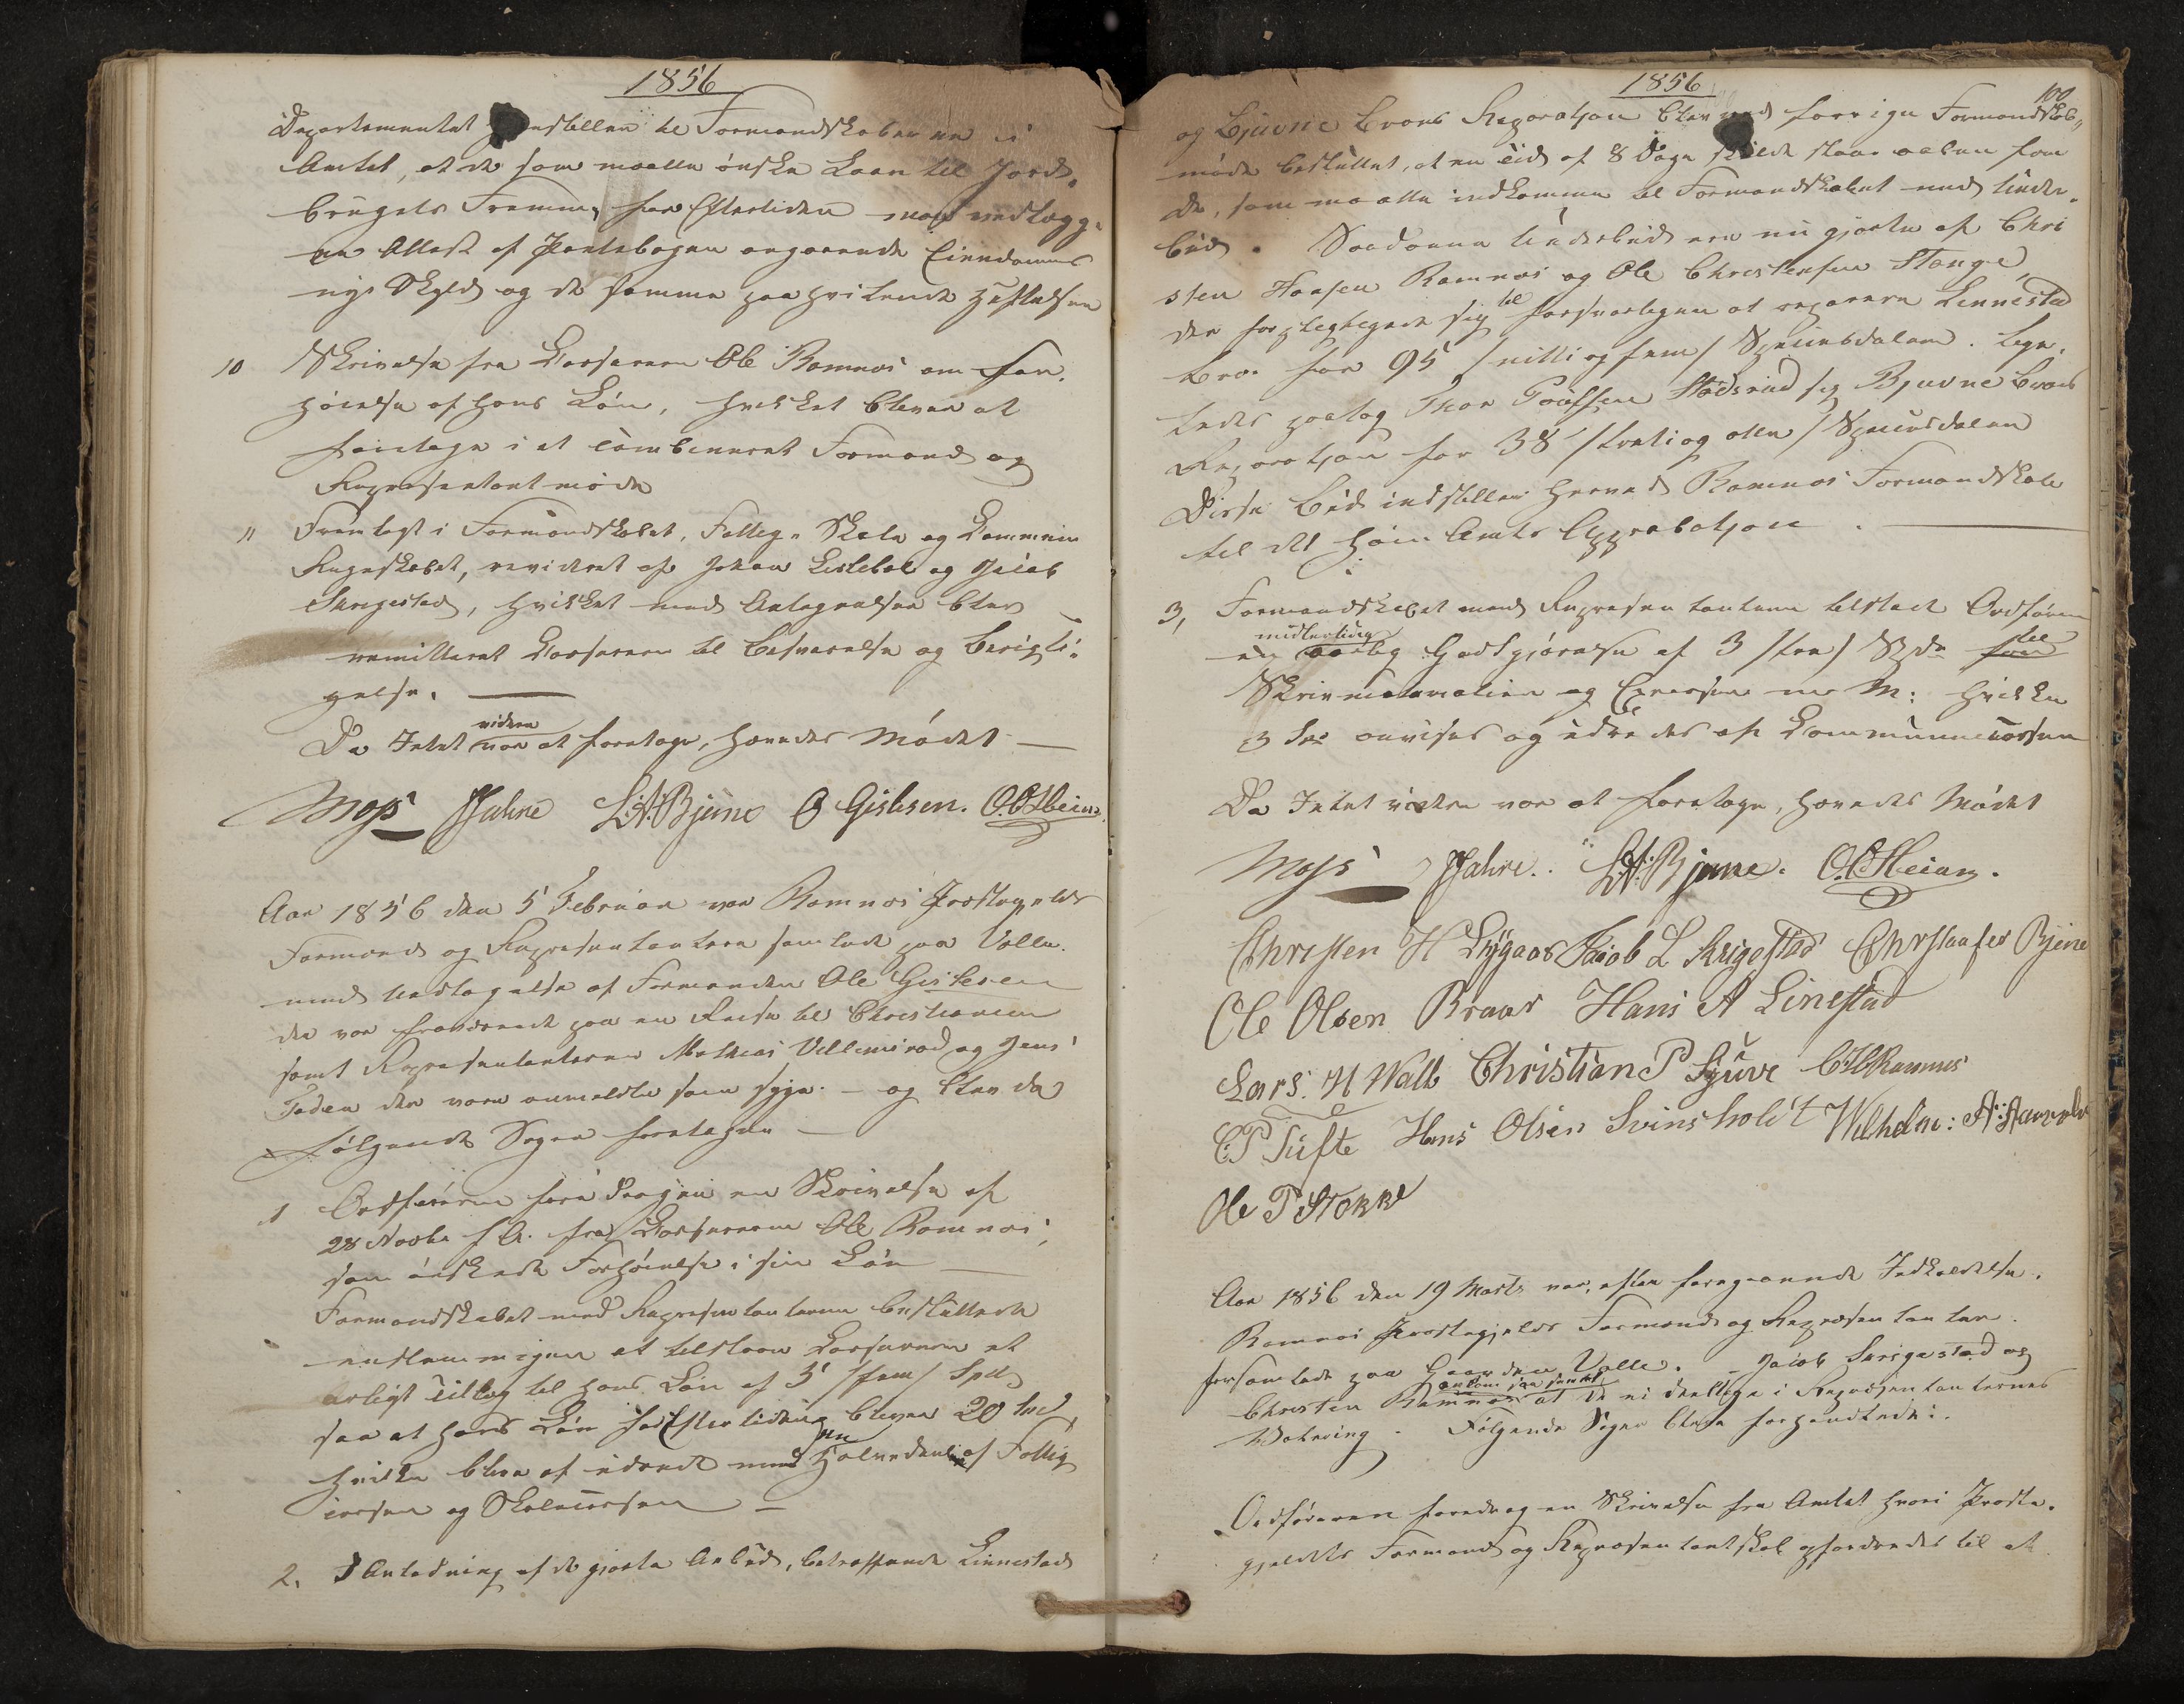 1856
Departementet henstiller til Formandskaberne i
Amtet, at de som maatte ønske Laan til Jord-
brugets Fremme, for Eftertiden maa vedlægge
en Attest af Pantebogen angaaende Eiendommens
nye Skyld og de samme paahvilende Hæftelser
10 Skrivelse fra Kassereren Ole Ramnæs om For-
høielse af hans Løn, hvilket bliver at
foretage i et combineret Formand og
Repræsentantmøde
11 Fremlagt i Formandskabet, Fattig- Skole og Commune
Regnskabet, revideret af Johan Lislebøe og Jacob
Skrigestad, hvilket med Antegnelser blev
remitteret Kassereren til Besvarelse og Berigti-
gelse.
Da Intet videre var at foretage, hævedes Mødet
Mojs Jahre L.A.Bjune O Gislesen. O.C.Heian.
Aar 1856 den 5 Februar var Ramnæs Præstegjelds
Formænd og Repræsentantere samlede paa Volle.
med Undtagelse af Formanden Ole Gislesen
der var fraværende paa en Reise til Christiania
samt Repræsentanterne Mathias Villemsrød og Jens
Faden der vare anmeldte som syge. – og blev da
følgende Sager foretagne
1 Ordføreren foredragen en Skrivelse af
28 Novbr f A. fra Kassereren Ole Ramnæs,
som ønskede Forhøielse i sin Løn
Formandskabet med Repræsentanterne besluttede
enstemmigen at tilstaae Kassereren et
aarligt Tillæg til hans Løn af 5 /fem/ Spd
saa at hans Løn for Eftertiden bliver 20 Spd,
hvilke blive at udrede med en Halvdel af Fattig
cassen og Skolecassen
2. I Anledning af de gjorte Anbud, betræffende Linnestad
1856
100
og Bjuvne Broes Reparation blev ved forrige Formandskabs-
møde besluttet, at en Tid af 8 Dage skulde staae aaben for
de, som maatte indkomme til Formandskabet med Under-
bud. Saadanne Underbud ere nu gjorte af Chri
sten Hansen Ramnæs og Ole Christensen Stange,
der forpligtigede sig til forsvarligen at reparere Linnestad
Bro for 95 /nitti og fem/ Speciesdaler. Lige-
ledes paatog Thor Paulsen Stadsrud sig Bjuvne Broes
Reparation for 38 /tretti og otte/ Speciesdaler
Disse Bud indstiller herved Ramnæs Formandskab
til det høie Amts Approbation.
3, Formandskabet med Repræsentanterne tilstod Ordføreren
en aarlig midlertidig Godtgjørelse af 3 /tre/ Spdr for til
Skrivematerialier og Expresser m M: hvilke
3 Spd anvises og udredes af Communecassen
Da Intet videre var at foretage, hævedes Mødet
Mojs Jahre. L.A.Bjune. O.C.Heian.
Christen H Lygaas Jacob L Skrigestad Christoffer Bjune
Ole Olsen Braar Hans A Linestad
Lars. H Walb Christian P Gjuve C.H.Ramnes
C P Tufte Hans Olsen Svinsholdt Wilhelm: A:
Ole P Stokke
Aar 1856 den 19 Marts var, efter foregaaende Indkaldelse,
Ramnæs Præstegjelds Formænd og Repræsentanter
forsamlede paa Gaarden Volle. – Jacob Skrigestad og
Christen Ramnæs at de ei deeltage i Repræsentanternes
Votering. Følgende Sager bleve forhandlede:
Ordføreren foredrog en Skrivelse fra Amtet hvori Præste-
gjeldets Formand og Repræsentantskab opfordredes til at